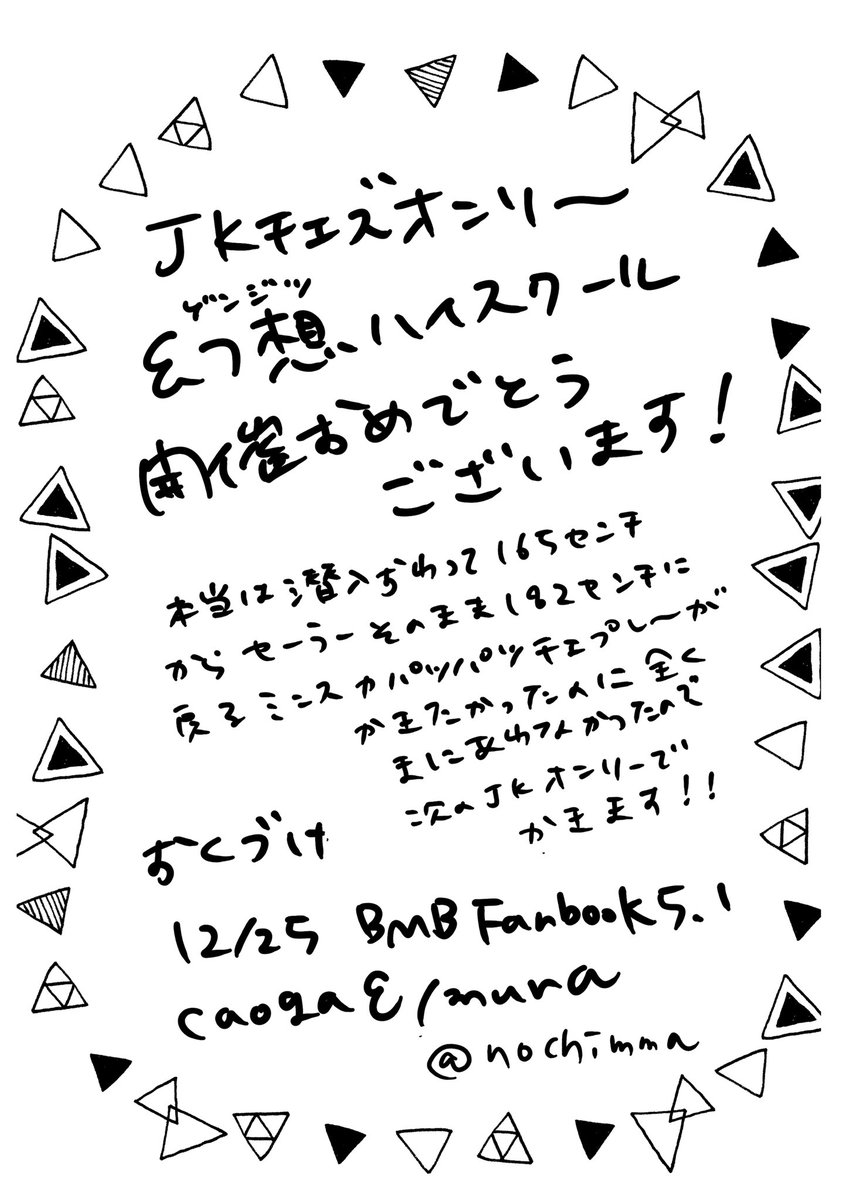 JKチェズオンリー
ゲンジツ
幻想ハイスクール
開催おめでとう
ございます!
本当は潜入おわって165センチ
からセーラーそのまま182センチに
戻るミンスカパツパツチェズプレーが
かきたかったんに全く
まにあわんかったので
次のJKオンリーで
かきます!!
おくづけ
12/25 BMB Fanbook 5.1
caoga
muna
@nochimma